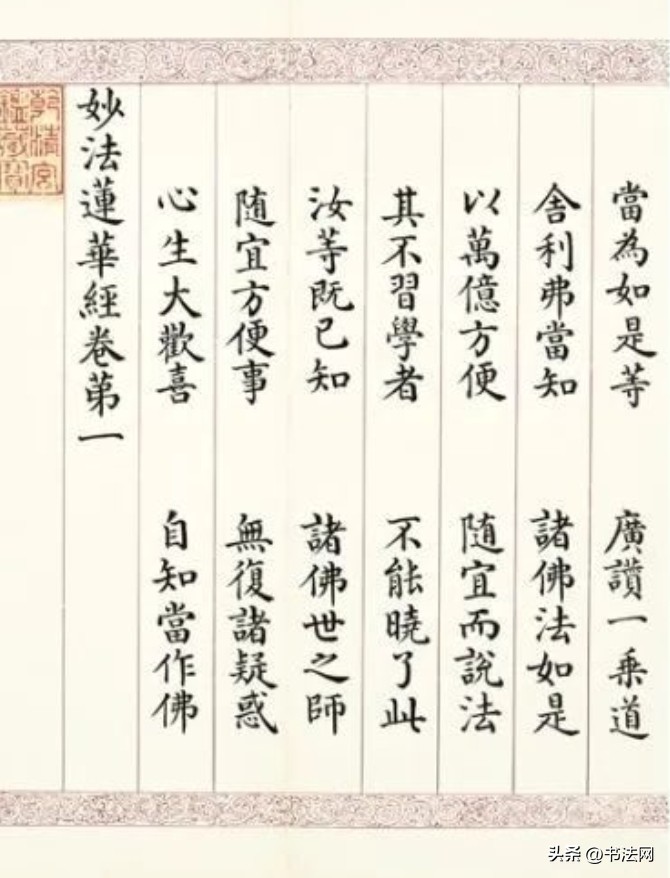 當為如是等 廣讚一乗道
舍利弗當知 諸佛法如是
以萬億方便 随宜而說法
其不習學者 不能曉了此
汝等既已知 諸佛世之師
随宜方便事 無復諸疑惑
心生大歡喜 自知當作佛
妙法蓮華經卷第一
乾清宮
鑑藏寶
头条 @书法网